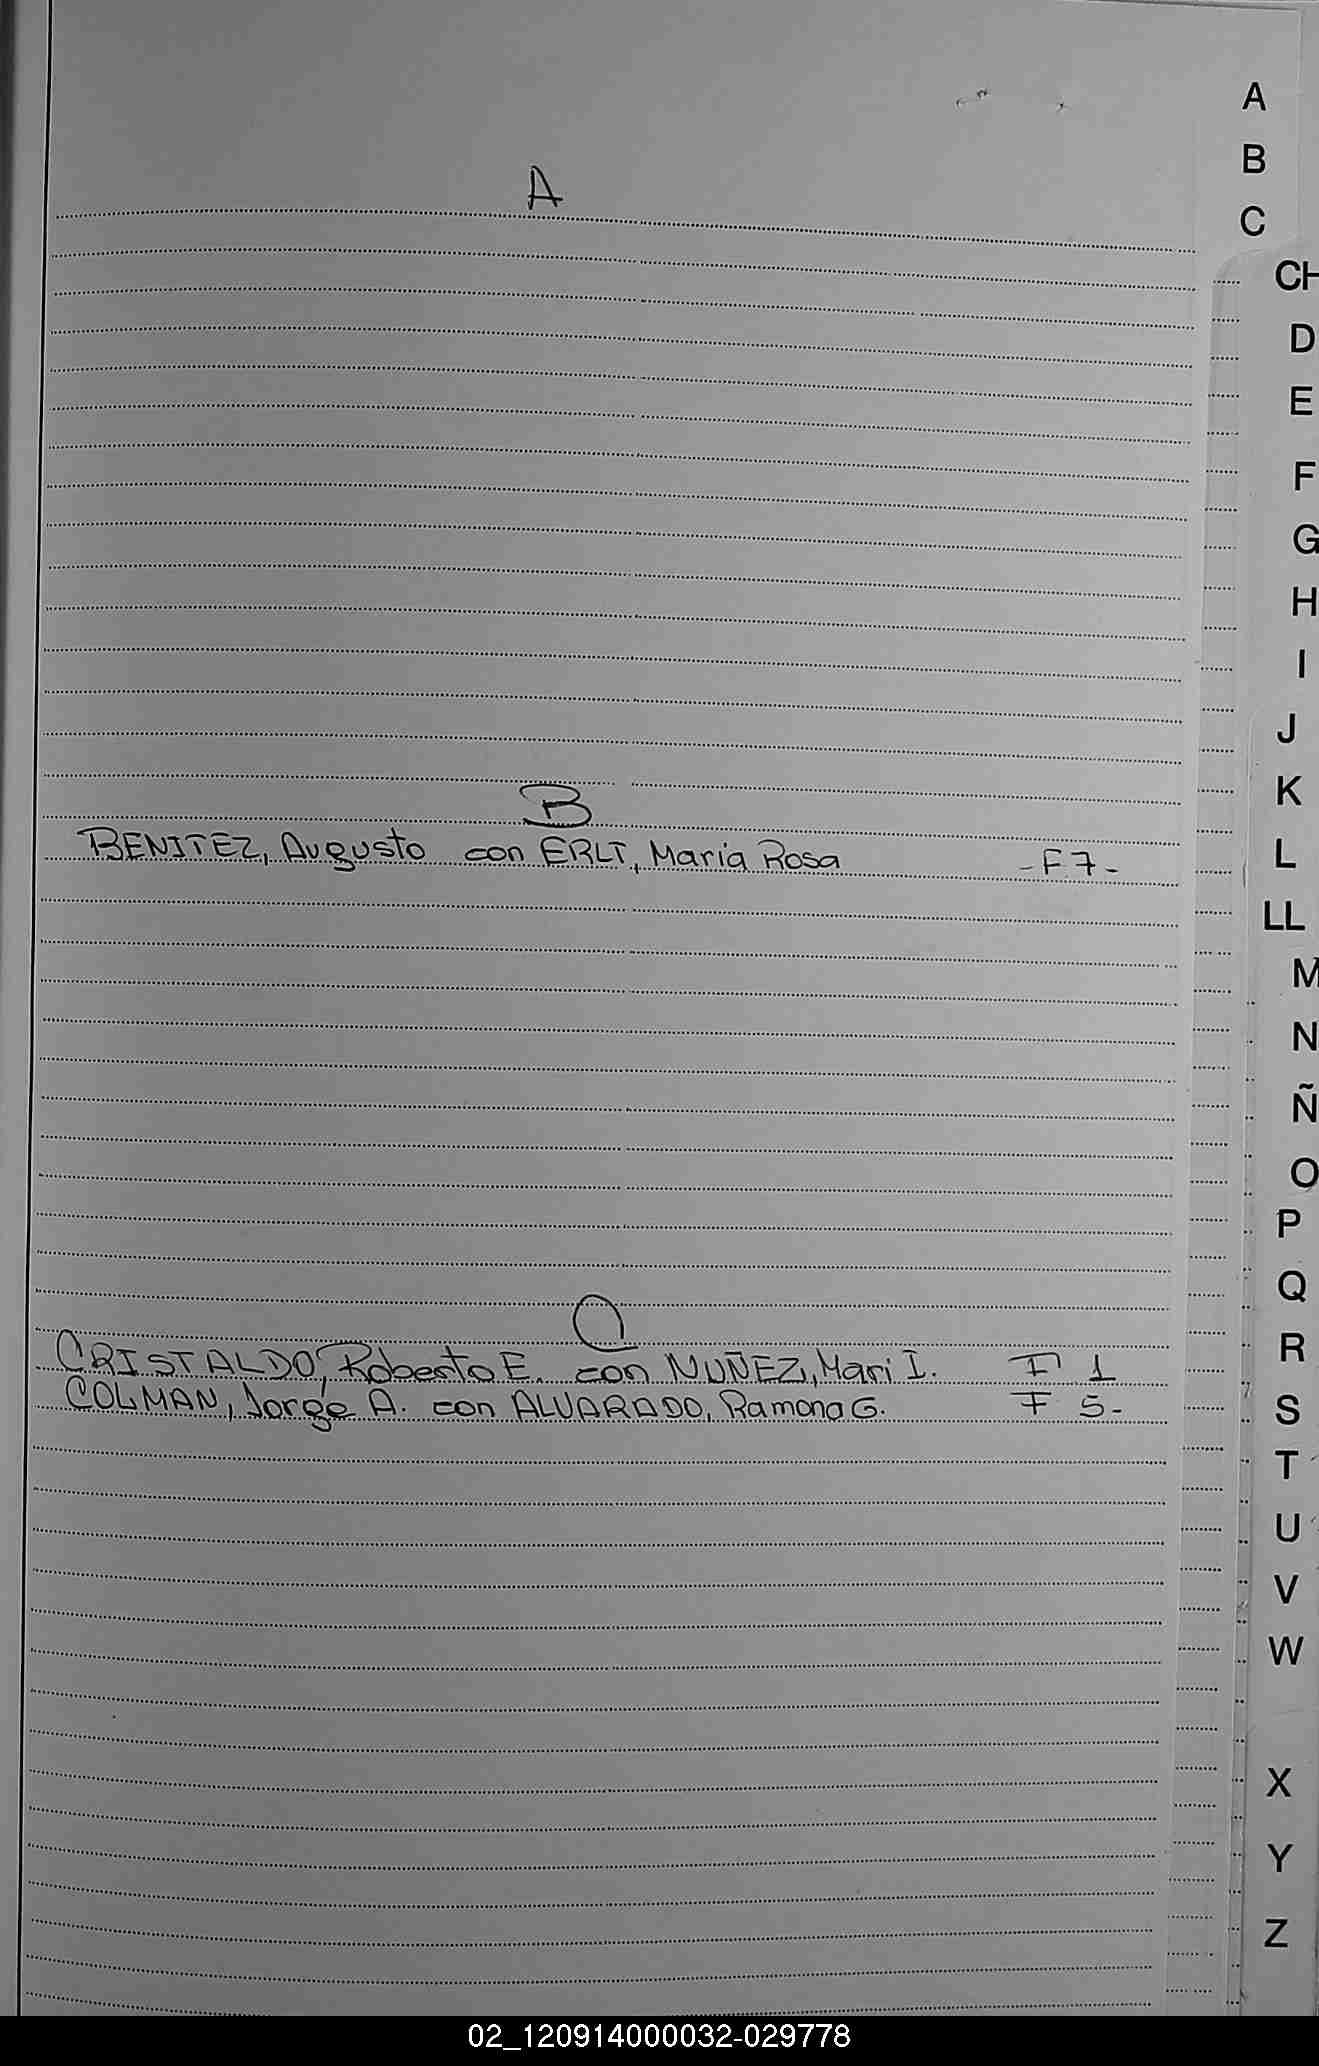 A
B
C
CH
D
E
F
G
H
I
J
K
L
LL
M
N
Ñ
O
P
Q
R
S
T
U
V
W
X
Y
Z
A
B
BENITEZ, Augusto con ERLT, Maria Rosa -F.7-
C
CRISTALDO, Roberto E. con NUÑEZ, Mari I. F 1
COLMAN, Jorge A. con ALVARADO, Ramona G. F 5-
02_120914000032-029778